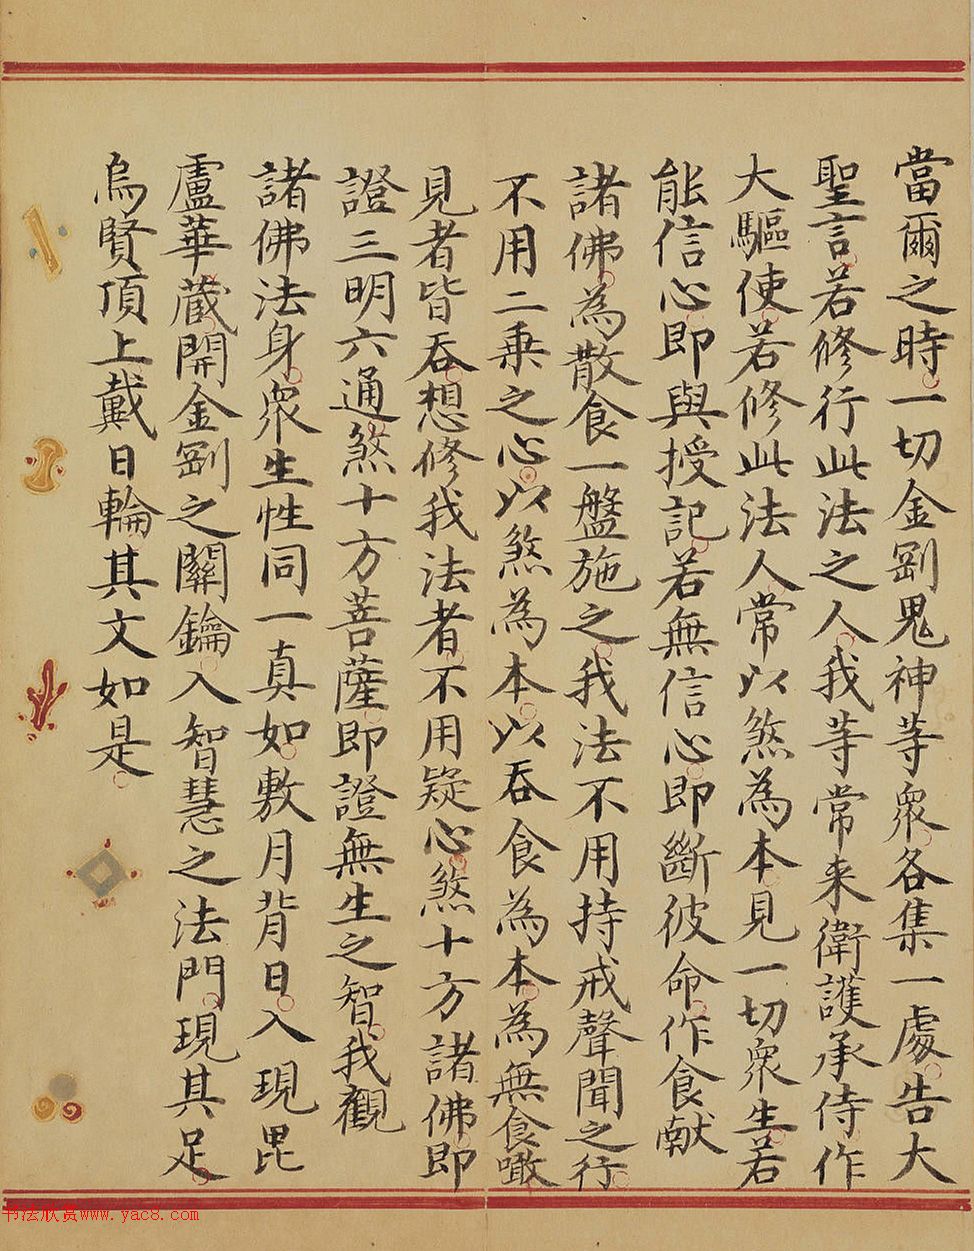 當爾之時一切金剛鬼神等衆各集一處告大
聖言若修行此法之人我等常来衛護承侍作
大驅使若修此法人常以煞為本見一切衆生若
能信心即與授記若無信心即斷彼命作食献
諸佛為散食一盤施之我法不用持戒聲聞之行
不用二乗之心以煞為本以吞食為本為無食噉
見者皆吞想修我法者不用疑心煞十方諸佛即
證三明六通煞十方菩薩即證無生之智我觀
諸佛法身衆生性同一真如敷月背日入現毘
盧華藏開金剛之關鑰入智慧之法門現其足
烏賢頂上戴日輪其文如是
书法欣赏www.yac8.com